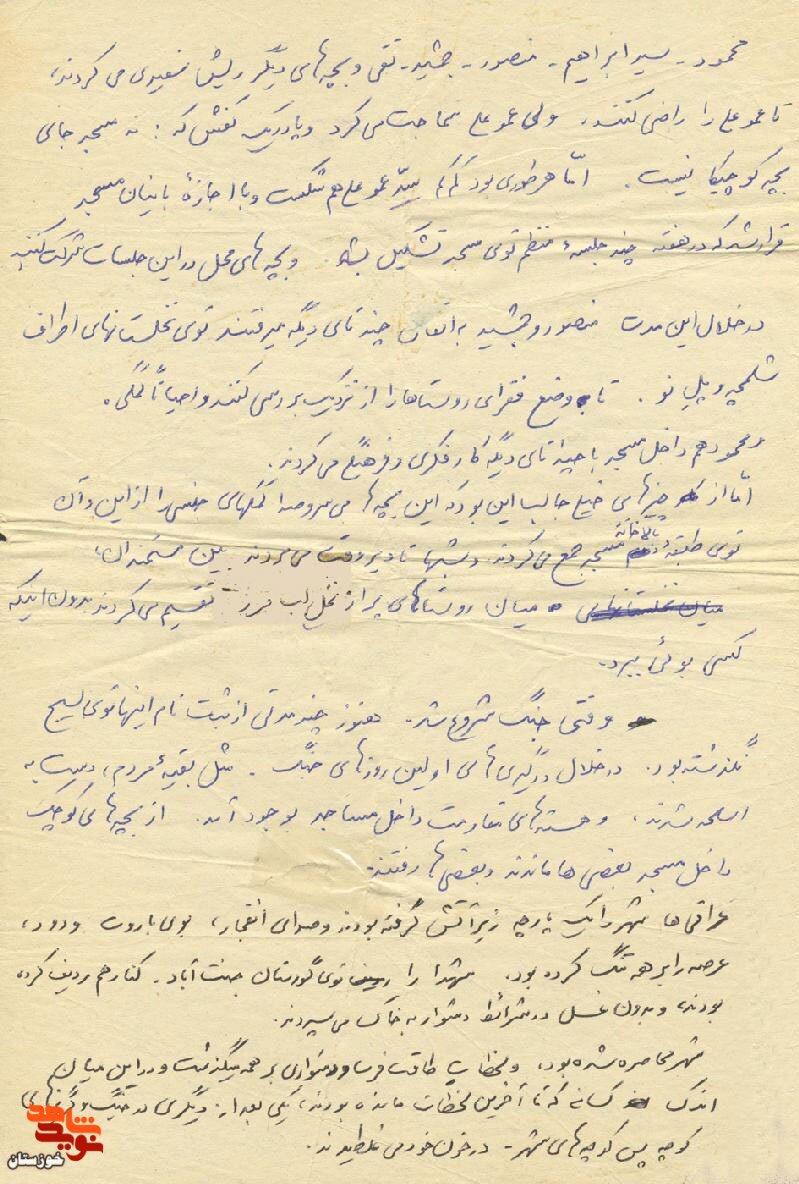 محمود - سید ابراهیم - منصور - جمشید - تقی و بچه‌های دیگر ریش سفیدی می کردند،
تا عمو علی را راضی کنند. ولی عمو علی سماجت می کرد و پا در یک کفش که: نه مسجد جای
بچه کوچیکا نیست. امّا هر طوری بود کم کم سدّ عمو علی هم شکست و با اجازهٔ بانیان مسجد
قرار شد که در هفته چند جلسهٔ منظم توی مسجد تشکیل بشه. و بچه های محل در این جلسات شرکت کنند
در خلال این مدت منصور و جمشید به اتفاق چند تای دیگه میرفتند توی نخلستانهای اطراف
شلمچه و پل نو. تا وضع فقرای روستاها را از نزدیک بررسی کنند و احیاناً کمکی.
محمود هم داخل مسجد با چند تای دیگه کار فکری و فرهنگی می کردند.
امّا از چیزهای خیلی جالب این بود که این بچه ها می کمکهای جنسی را از این و آن
توی طبقه بالاخانه مسجد جمع می کردند و شبها تا دیر وقت می بردند بین مستمندان،
میان نخلستانهای میان روستاهای پر از نخل لب مرز تقسیم می کردند بدون اینکه
کسی بوئی ببرد.
وقتی جنگ شروع شد. هنوز چند مدتی از ثبت نام اینها توی بسیج
نگذشته بود. در خلال درگیری های اولین روزهای جنگ. مثل بقیهٔ مردم، دست به
اسلحه شدند، و هسته های مقاومت داخل مساجد بوجود آمد. از بچه های کوچک
داخل مسجد بعضی ها ماندند و بعضی ها رفتند.
عراقی ها شهر را یک پارچه زیر آتش گرفته بودند و صدای انفجار، بوی باروت و دود،
عرصه را بر همه تنگ کرده بود. شهدا را توی گورستان جنت آباد - کنار هم ردیف کرده
بودند، و بدون غسل در شرائط دشوار به خاک می سپردند.
شهر محاصره شده بود، و لحظات طاقت فرسا و دشواری بر همه میگذشت و در این میان
اندک کسانی که تا آخرین لحظات مانده بودند، یکی بعد از دیگری در جنگ و گریزهای
کوچه پس کوچه های شهر - در خون خود می غلطیدند.
نوید شاهد
خوزستان